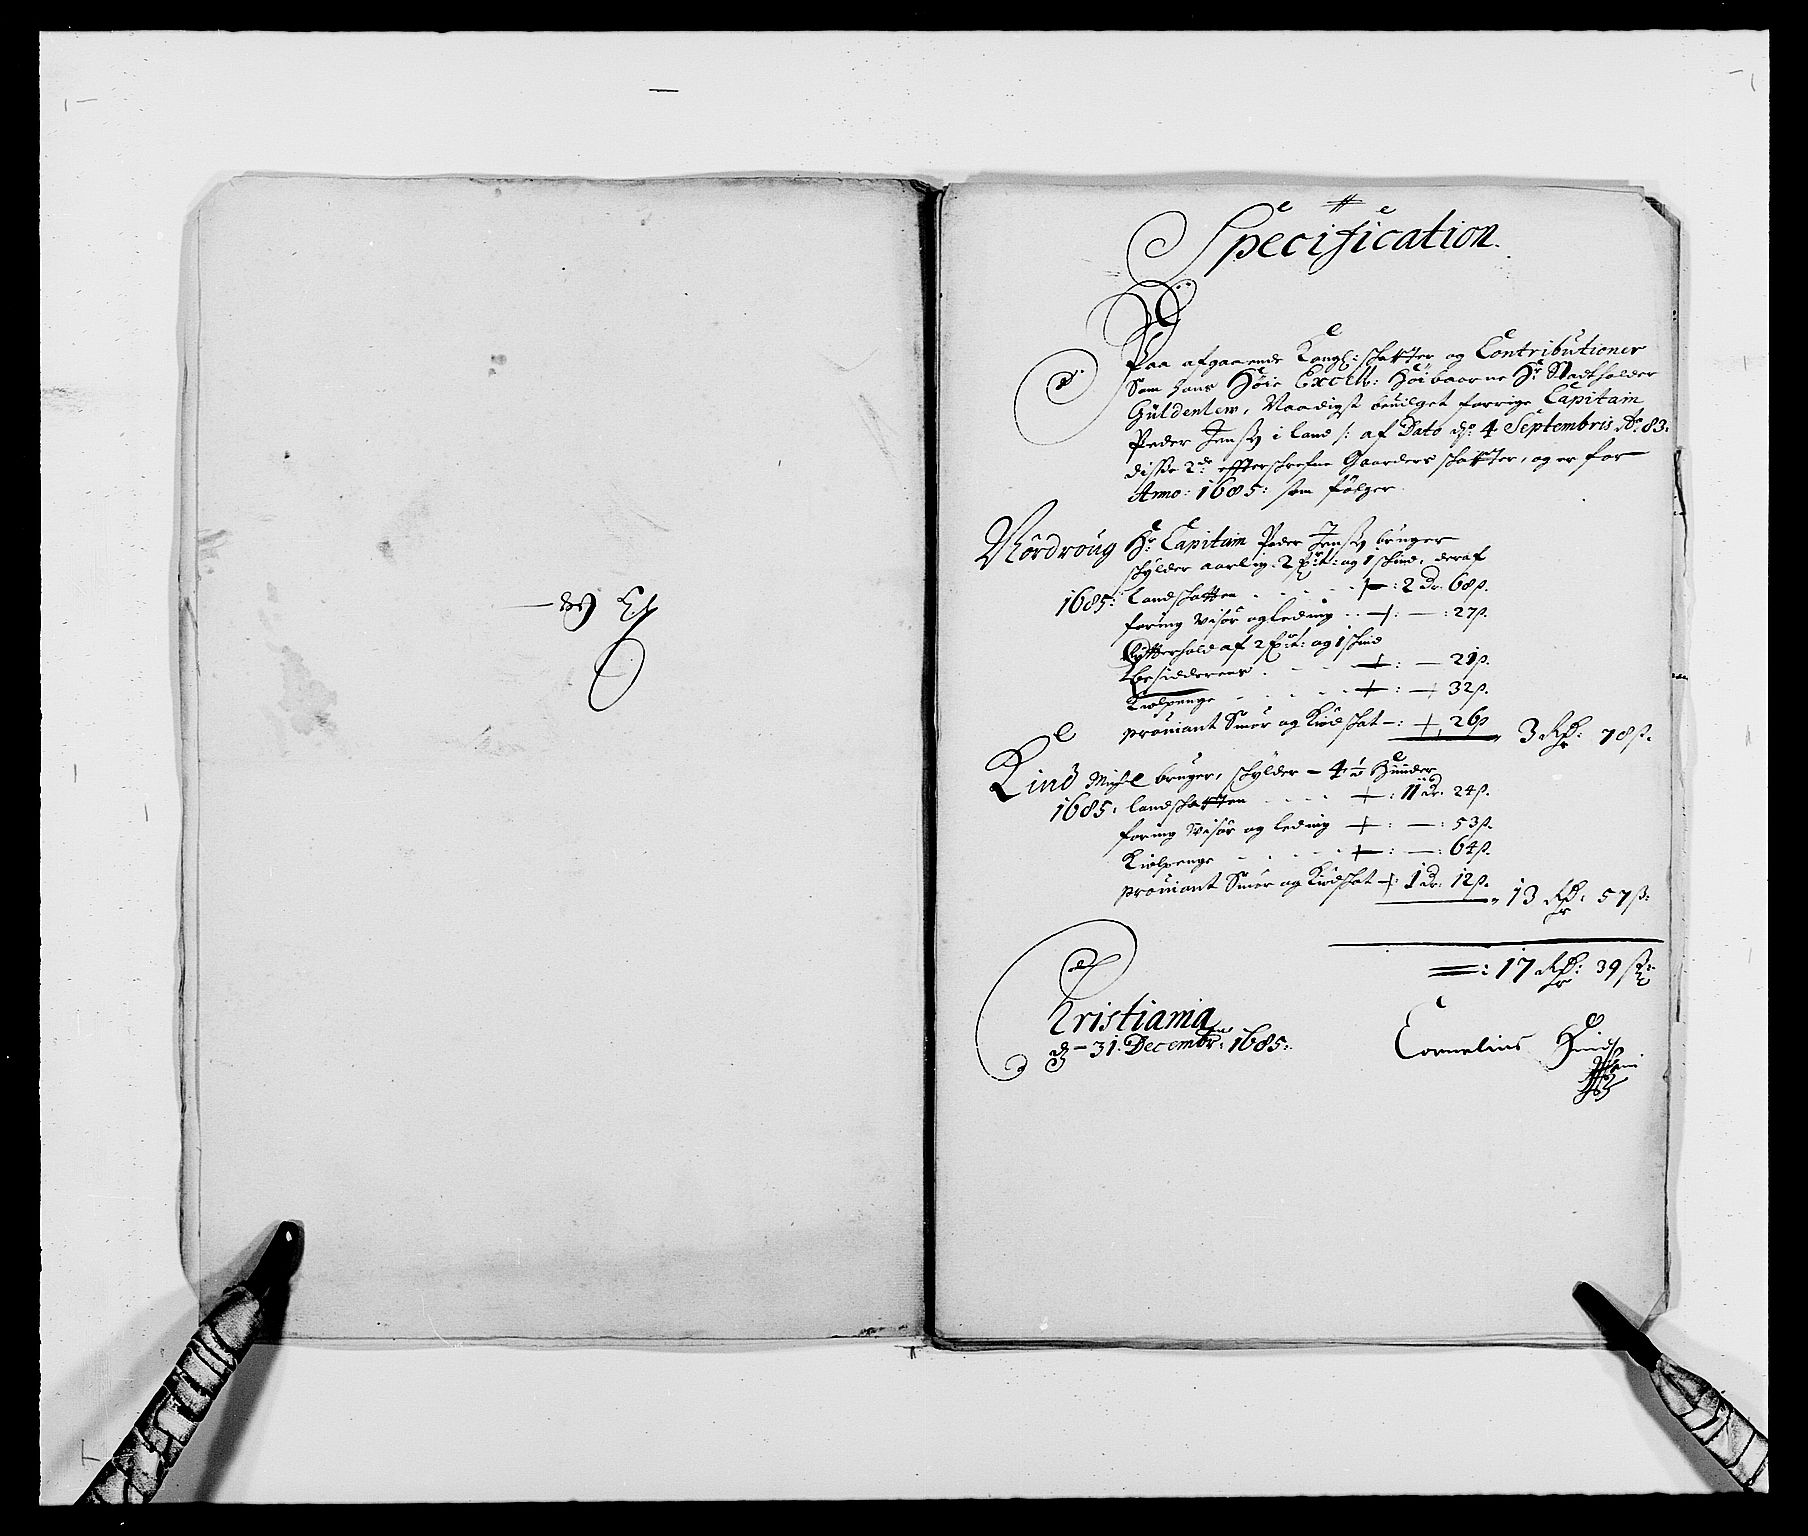 Specification
Paa afgaaende Kongl: schatter og Contributioner
Som hans Høie Excell: Höibaarne Hr Stadtholder
Güldenlew, Naadigst beuilget forrige Capitain
Peder Jensen i land /: af Dato dn: 4 Septembris Ao: 83:
disse 2de: effterschrefne Gaarders schatter, og er for
Anno: 1685: som følger
Nordroug Hr: Capitain Peder Jensen bruger
schylder aarlig 2 og 1 schind, deraf
1685: landschatten : 2 Dr: 68 ß.
foring Wisør og leding : 27 ß.
Rytterhold af 2 og 1 schind
besidderens 21 ß.
Kiølpenge 32 ß.
prouiant Smør og Kiødschat 26 ß 3 Rdr: 78 ß.
Lind bruger, schylder - 4½ Hunder
1685: landschatten : 11 Dr: 24 ß.
foring Wisør og leding : 53 ß.
Kiølpenge : 64 ß.
prouiant Smør og Kiødschat : 1 Dr: 12 ß. 13 Rdr: 57 ß:
: 17 Rdr: 39 ß:
Kristiania
d - 31. Decembr: 1685:
Cornelius